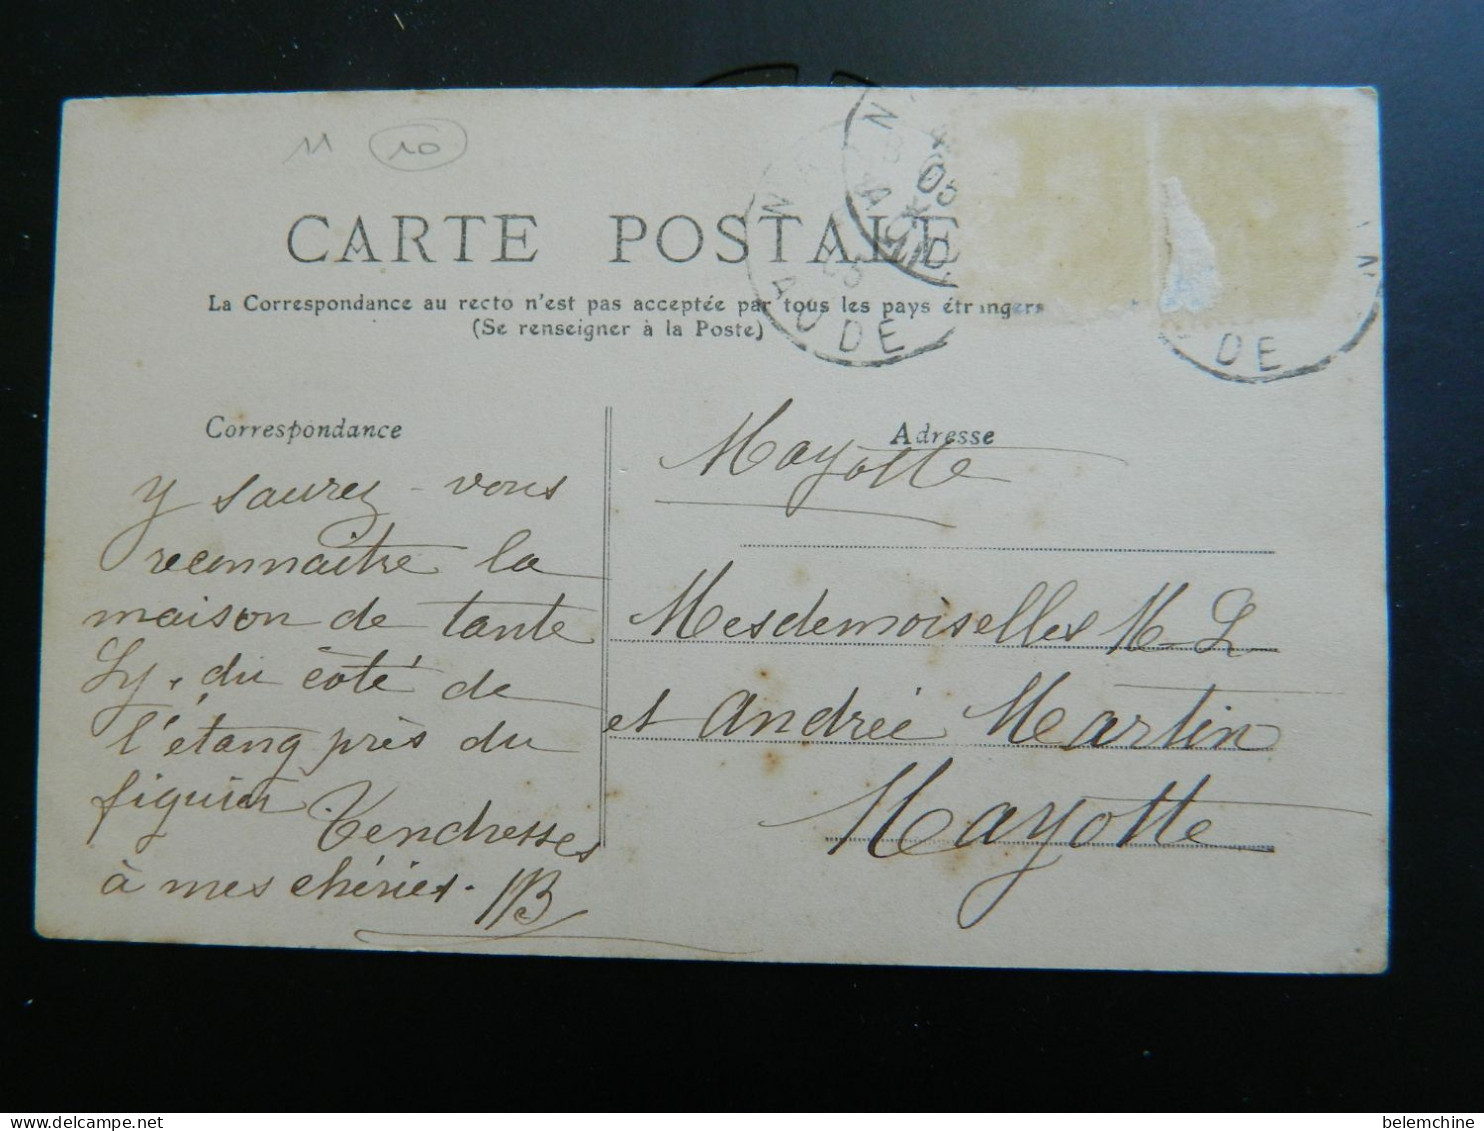 11 10
CARTE POSTALE
La Correspondance au recto n'est pas acceptée par tous les pays étrangers
(Se renseigner à la Poste)
AUDE
DE
Correspondance
Adresse
y saurez-vous
reconnaitre la
maison de tante
Ly, du côté de
l'étang près du
figuier Tendresses
à mes chéries. MB
Mayotte
Mesdemoiselles M-L
et Andrée Martin
Mayotte
belemchine